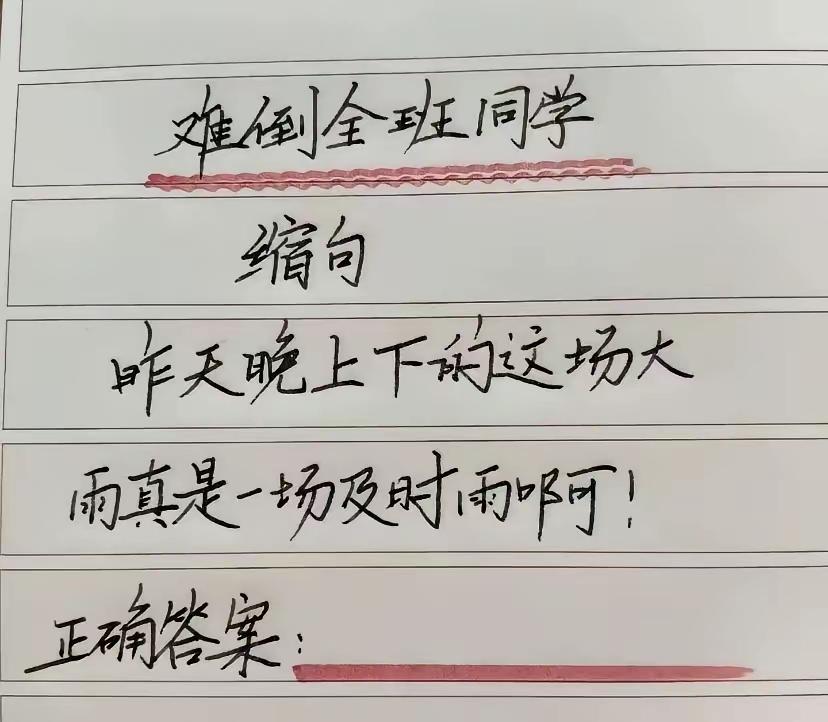 难倒全班同学
缩句
昨天晚上下的这场大
雨真是一场及时雨啊!
正确答案: